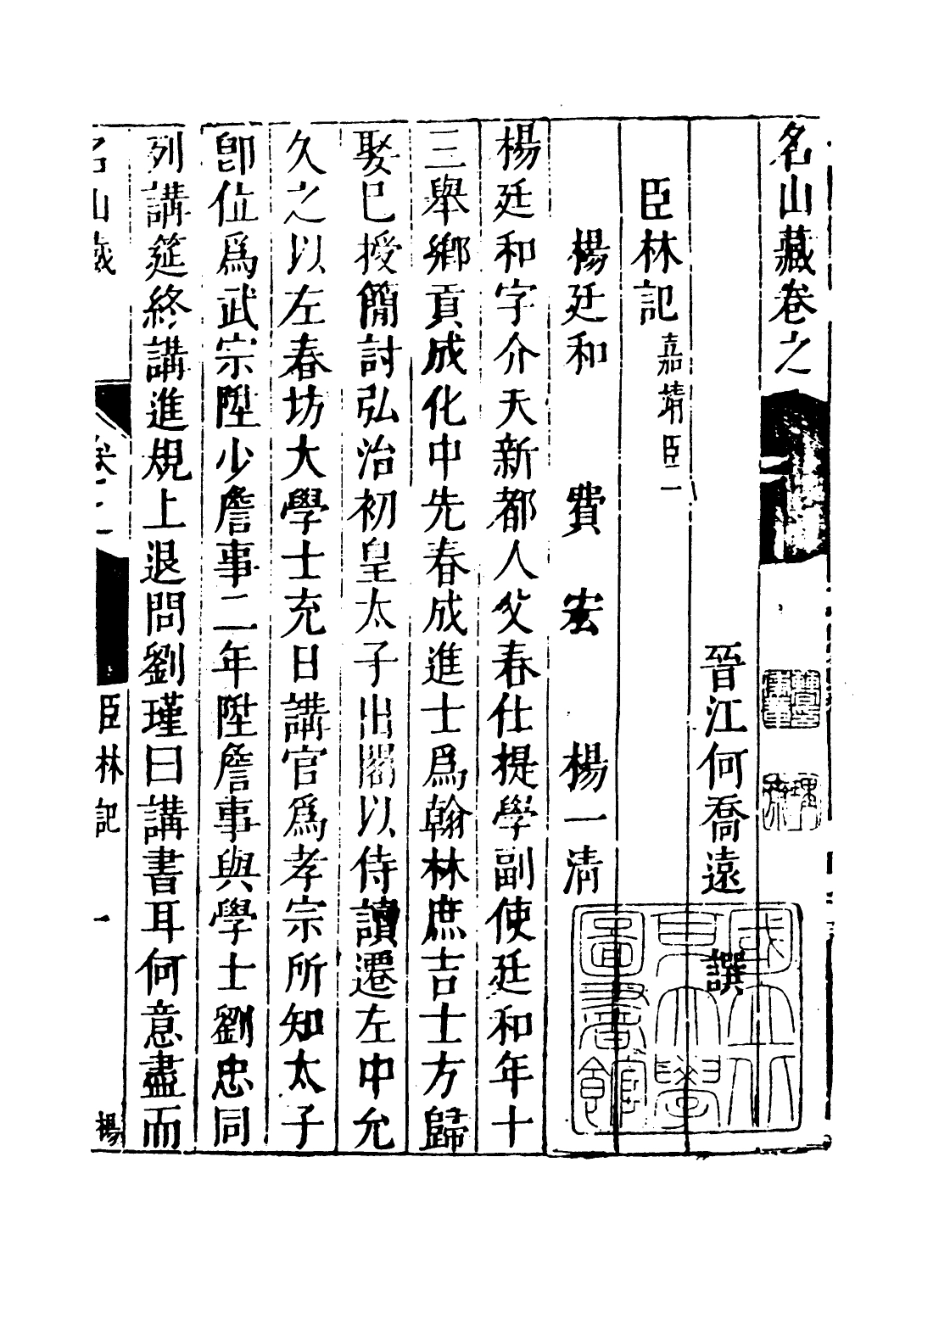 名山藏卷之
晉江何喬遠 譔
臣林記 嘉靖臣一
楊廷和 費宏 楊一清
楊廷和字介夫新都人父春仕提學副使廷和年十
三舉鄉貢成化中先春成進士爲翰林庶吉士方歸
娶已授簡討弘治初皇太子出閣以侍讀遷左中允
久之以左春坊大學士充日講官爲孝宗所知太子
卽位爲武宗陞少詹事二年陞詹事與學士劉忠同
列講筵終講進規上退問劉瑾曰講書耳何意盡而
名山藏 卷之 臣林記 一 楊
國立北平圖書館